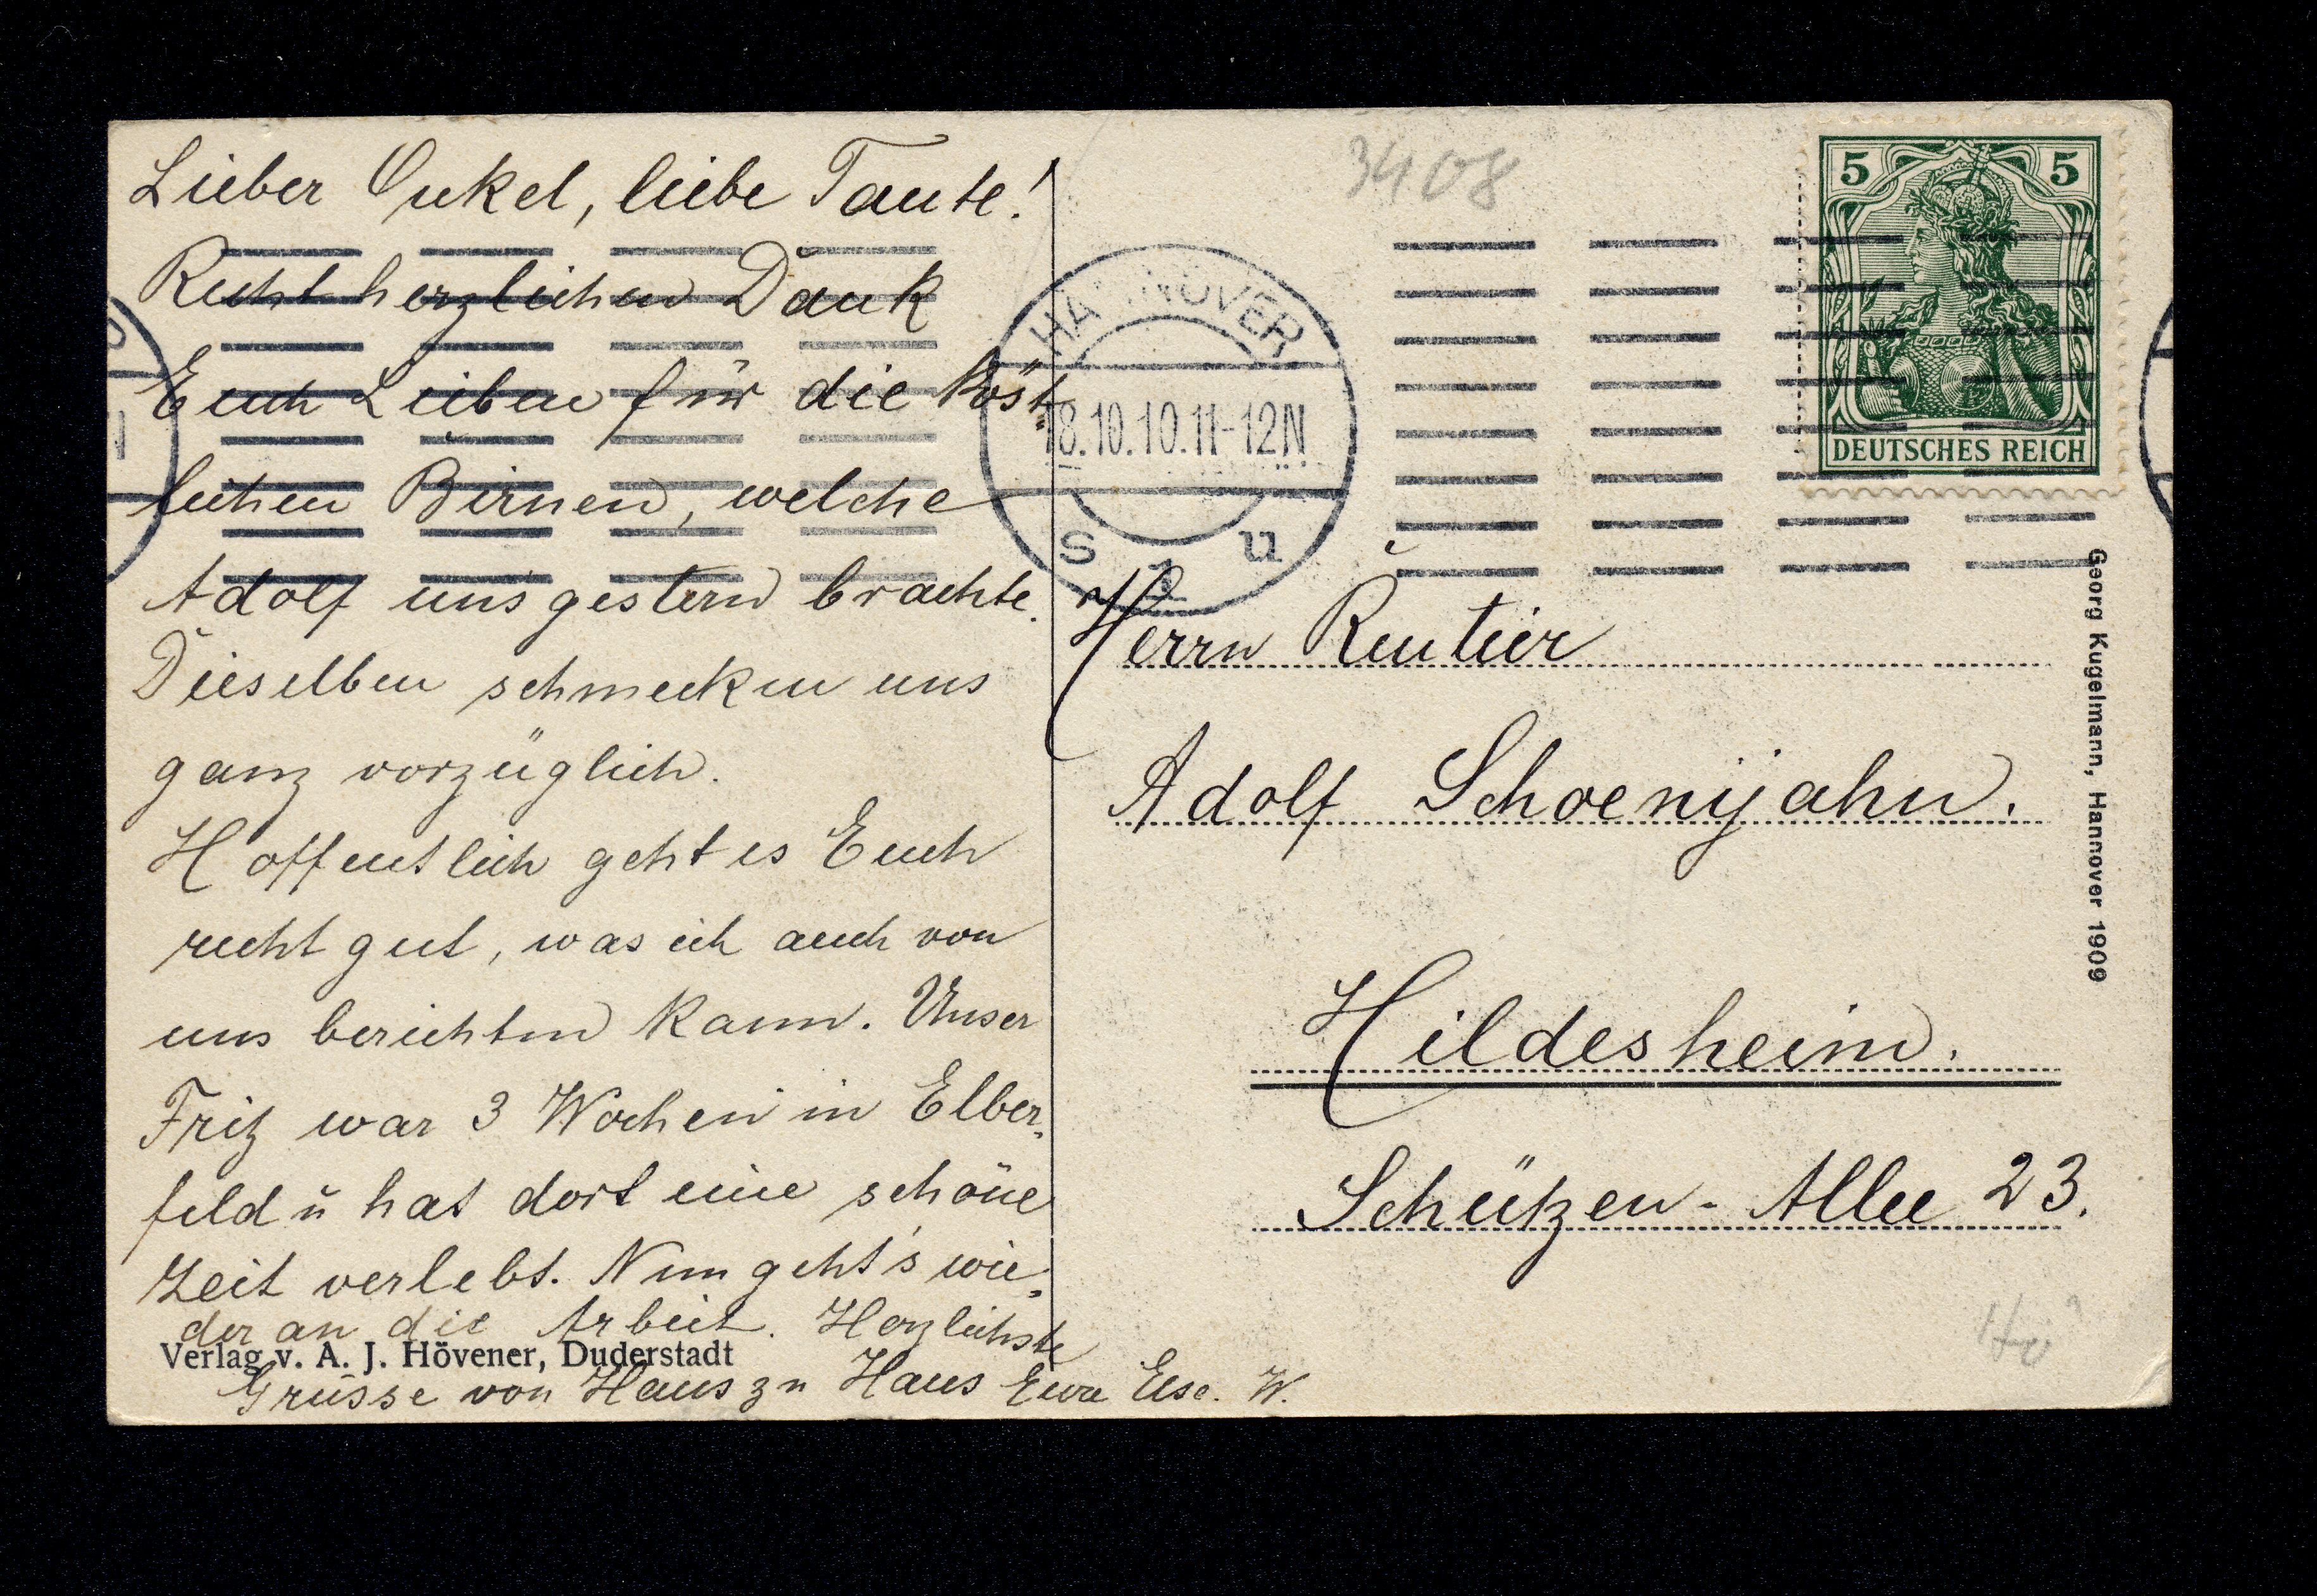 Lieber Onkel, liebe Tante!
Recht herzlichen Dank
Euch Lieben für die köst-
lichen Birnen, welche
Adolf uns gestern brachte.
Dieselben schmecken uns
ganz vorzüglich.
Hoffentlich geht es Euch
recht gut, was ich auch von
uns berichten kann. Unser
Fritz war 3 Wochen in Elber-
feld u hat dort eine schöne
Zeit verlebt. Nun geht's wie-
der an die Arbeit. Herzlichste
Grüsse von Haus zu Haus Eure Else. W.
Verlag v. A. J. Hövener, Duderstadt
3408
HANNOVER
18.10.10.11-12N
S 1 u
5 5
DEUTSCHES REICH
Herrn Rentier
Adolf Schoenijahn.
Hildesheim.
Schützen-Allee 23.
Georg Kugelmann, Hannover 1909